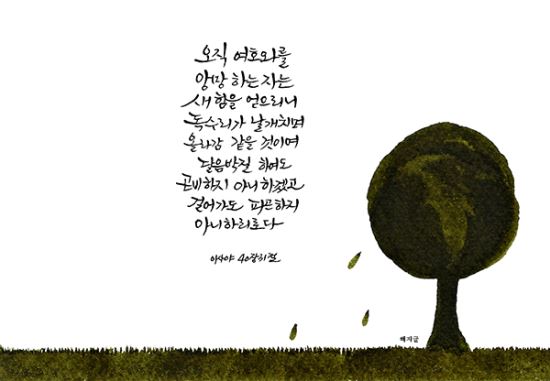 오직 여호와를
앙망 하는 자는
새 힘을 얻으리니
독수리가 날개치며
올라감 같을 것이며
달음박질 하여도
곤비하지 아니 하겠고
걸어가도 피곤하지
아니하리로다
이사야 40장31절